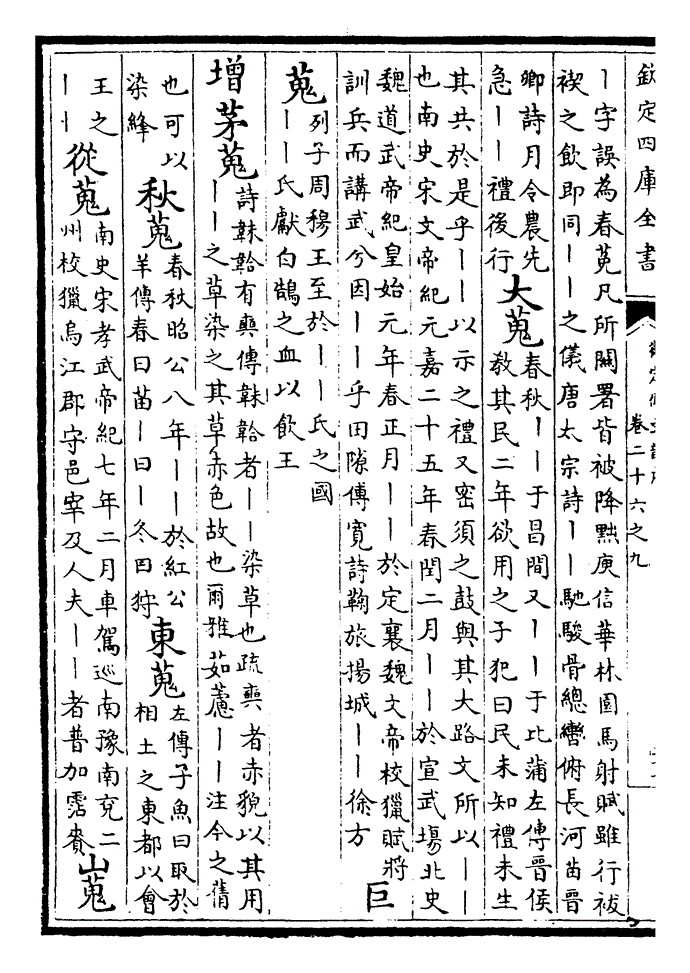 欽定四庫全書
卷二十六之九
丨字誤為春菟凡所關署皆被降黜庾信華林園馬射賦雖行祓
禊之飲即同丨丨之儀唐太宗詩丨丨馳駿骨總轡俯長河苗晉
卿詩月令農先
急丨丨禮後行
大蒐
春秋丨丨于昌間又丨丨于比蒲左傳晉侯
教其民二年欲用之子犯曰民未知禮未生
其共於是乎丨丨以示之禮又密須之鼓與其大路文所以丨丨
也南史宋文帝紀元嘉二十五年春閏二月丨丨於宣武場北史
魏道武帝紀皇始元年春正月丨丨於定襄魏文帝校獵賦將
訓兵而講武兮因丨丨乎田隙傅寬詩鞠旅揚城丨丨徐方
巨
蒐
列子周穆王至於丨丨氏之國
丨丨氏獻白鵠之血以飲王
增茅蒐
詩韎韐有奭傳韎韐者丨丨染草也疏奭者赤貌以其用
丨丨之草染之其草赤色故也爾雅茹藘丨丨注今之蒨
也可以
染絳
秋蒐
春秋昭公八年丨丨於紅公
羊傳春曰苗丨曰丨冬曰狩
東蒐
左傳子魚曰取於
相土之東都以會
王之
丨丨
從蒐
南史宋孝武帝紀七年二月車駕巡南豫南兗二
州校獵烏江郡守邑宰及人夫丨丨者普加霑賚
山蒐